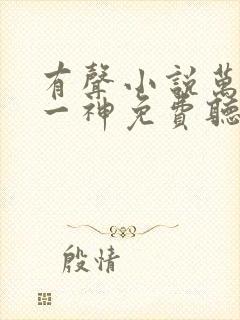 有聲小說萬
一神免費聽
殷情